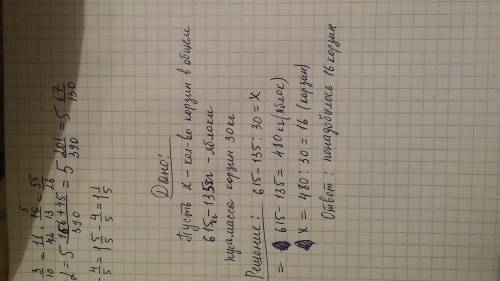 3/10 = 11/44 : 5/10 = 55/26
2 = 5 156+45/390 = 5 201/390 = 5 67/130
- 4/5 = 1 5/5 - 4/5 = 1 1/5
Дано:
Пусть x - кол-во корзин в общем
615кг - 135кг - яблоки
масса корзин 30кг
Решение: 615-135:30=x
= 615-135=480 кг (яблок)
x = 480:30=16 (корзин)
Ответ: понадобилось 16 корзин